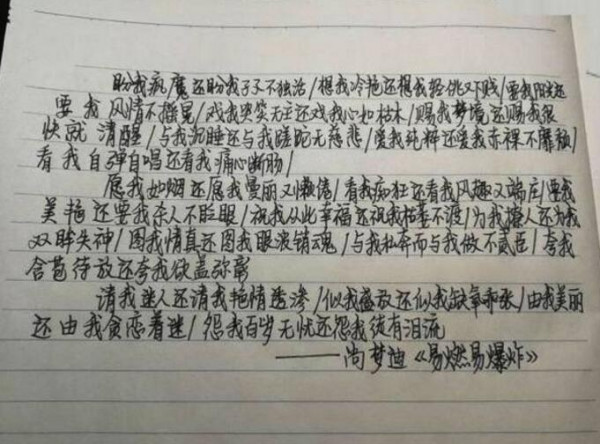 盼我疯魔还盼我孑孓不独活/想我冷艳还想我轻佻下贱/要我阳光还
要我风情不摇晃/戏我哭笑无主还戏我心如枯木/赐我梦境还赐我很
快就清醒/与我沉睡还与我蹉跎无慈悲/爱我纯粹还爱我赤裸不靡颓/
看我自弹自唱还看我痛心断肠/
愿我如烟还愿我曼丽又懒倦/看我痴狂还看我风趣又端庄/要我
美艳还要我杀人不眨眼/祝我从此幸福还祝我枯萎不渡/为我撩人还为我
双眸失神/图我情真还图我眼波销魂/与我私奔而与我做不贰臣/夸我
含苞待放还夸我欲盖弥彰
请我迷人还请我艳情透渗/似我盛放还似我缺氧乖张/由我美丽
还由我贪恋着迷/怨我百岁无忧还怨我徒有泪流
——尚梦迪《易燃易爆炸》